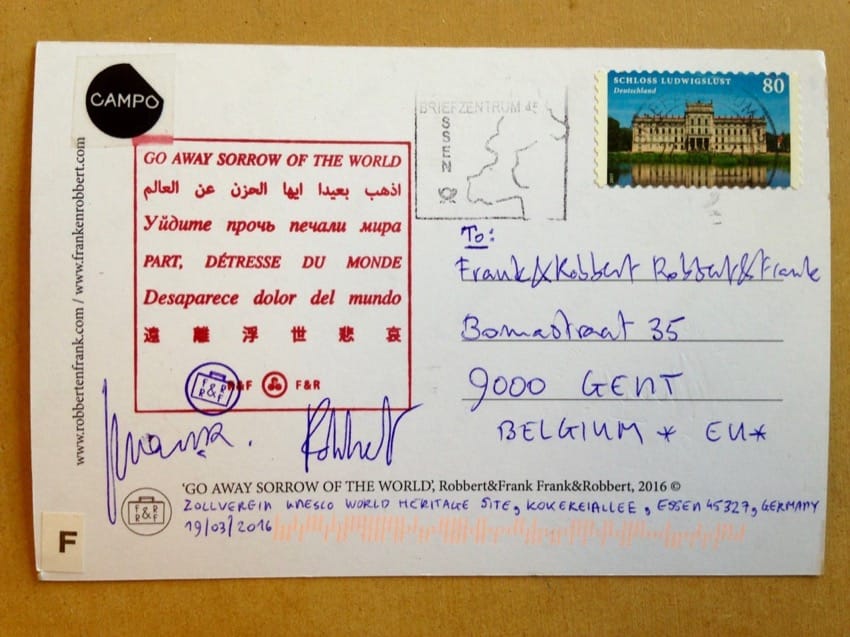 CAMPO
www.robbertenfrank.com / www.frankenrobbert.com
GO AWAY SORROW OF THE WORLD
اذهب بعيدا ايها الحزن عن العالم
Уйдите прочь печали мира
PART, DÉTRESSE DU MONDE
Desaparece dolor del mundo
遠離浮世悲哀
R&F F&R
F&R
R&F
Robbert
BRIEFZENTRUM 45
ESSEN
SCHLOSS LUDWIGSLUST
Deutschland
80
To:
Frank&Robbert Robbert&Frank
Bomastraat 35
9000 GENT
BELGIUM * EU*
'GO AWAY SORROW OF THE WORLD', Robbert&Frank Frank&Robbert, 2016 ©
ZOLLVEREIN UNESCO WORLD HERITAGE SITE, KOKEREIALLEE, ESSEN 45327, GERMANY
19/03/2016
F&R
R&F
F